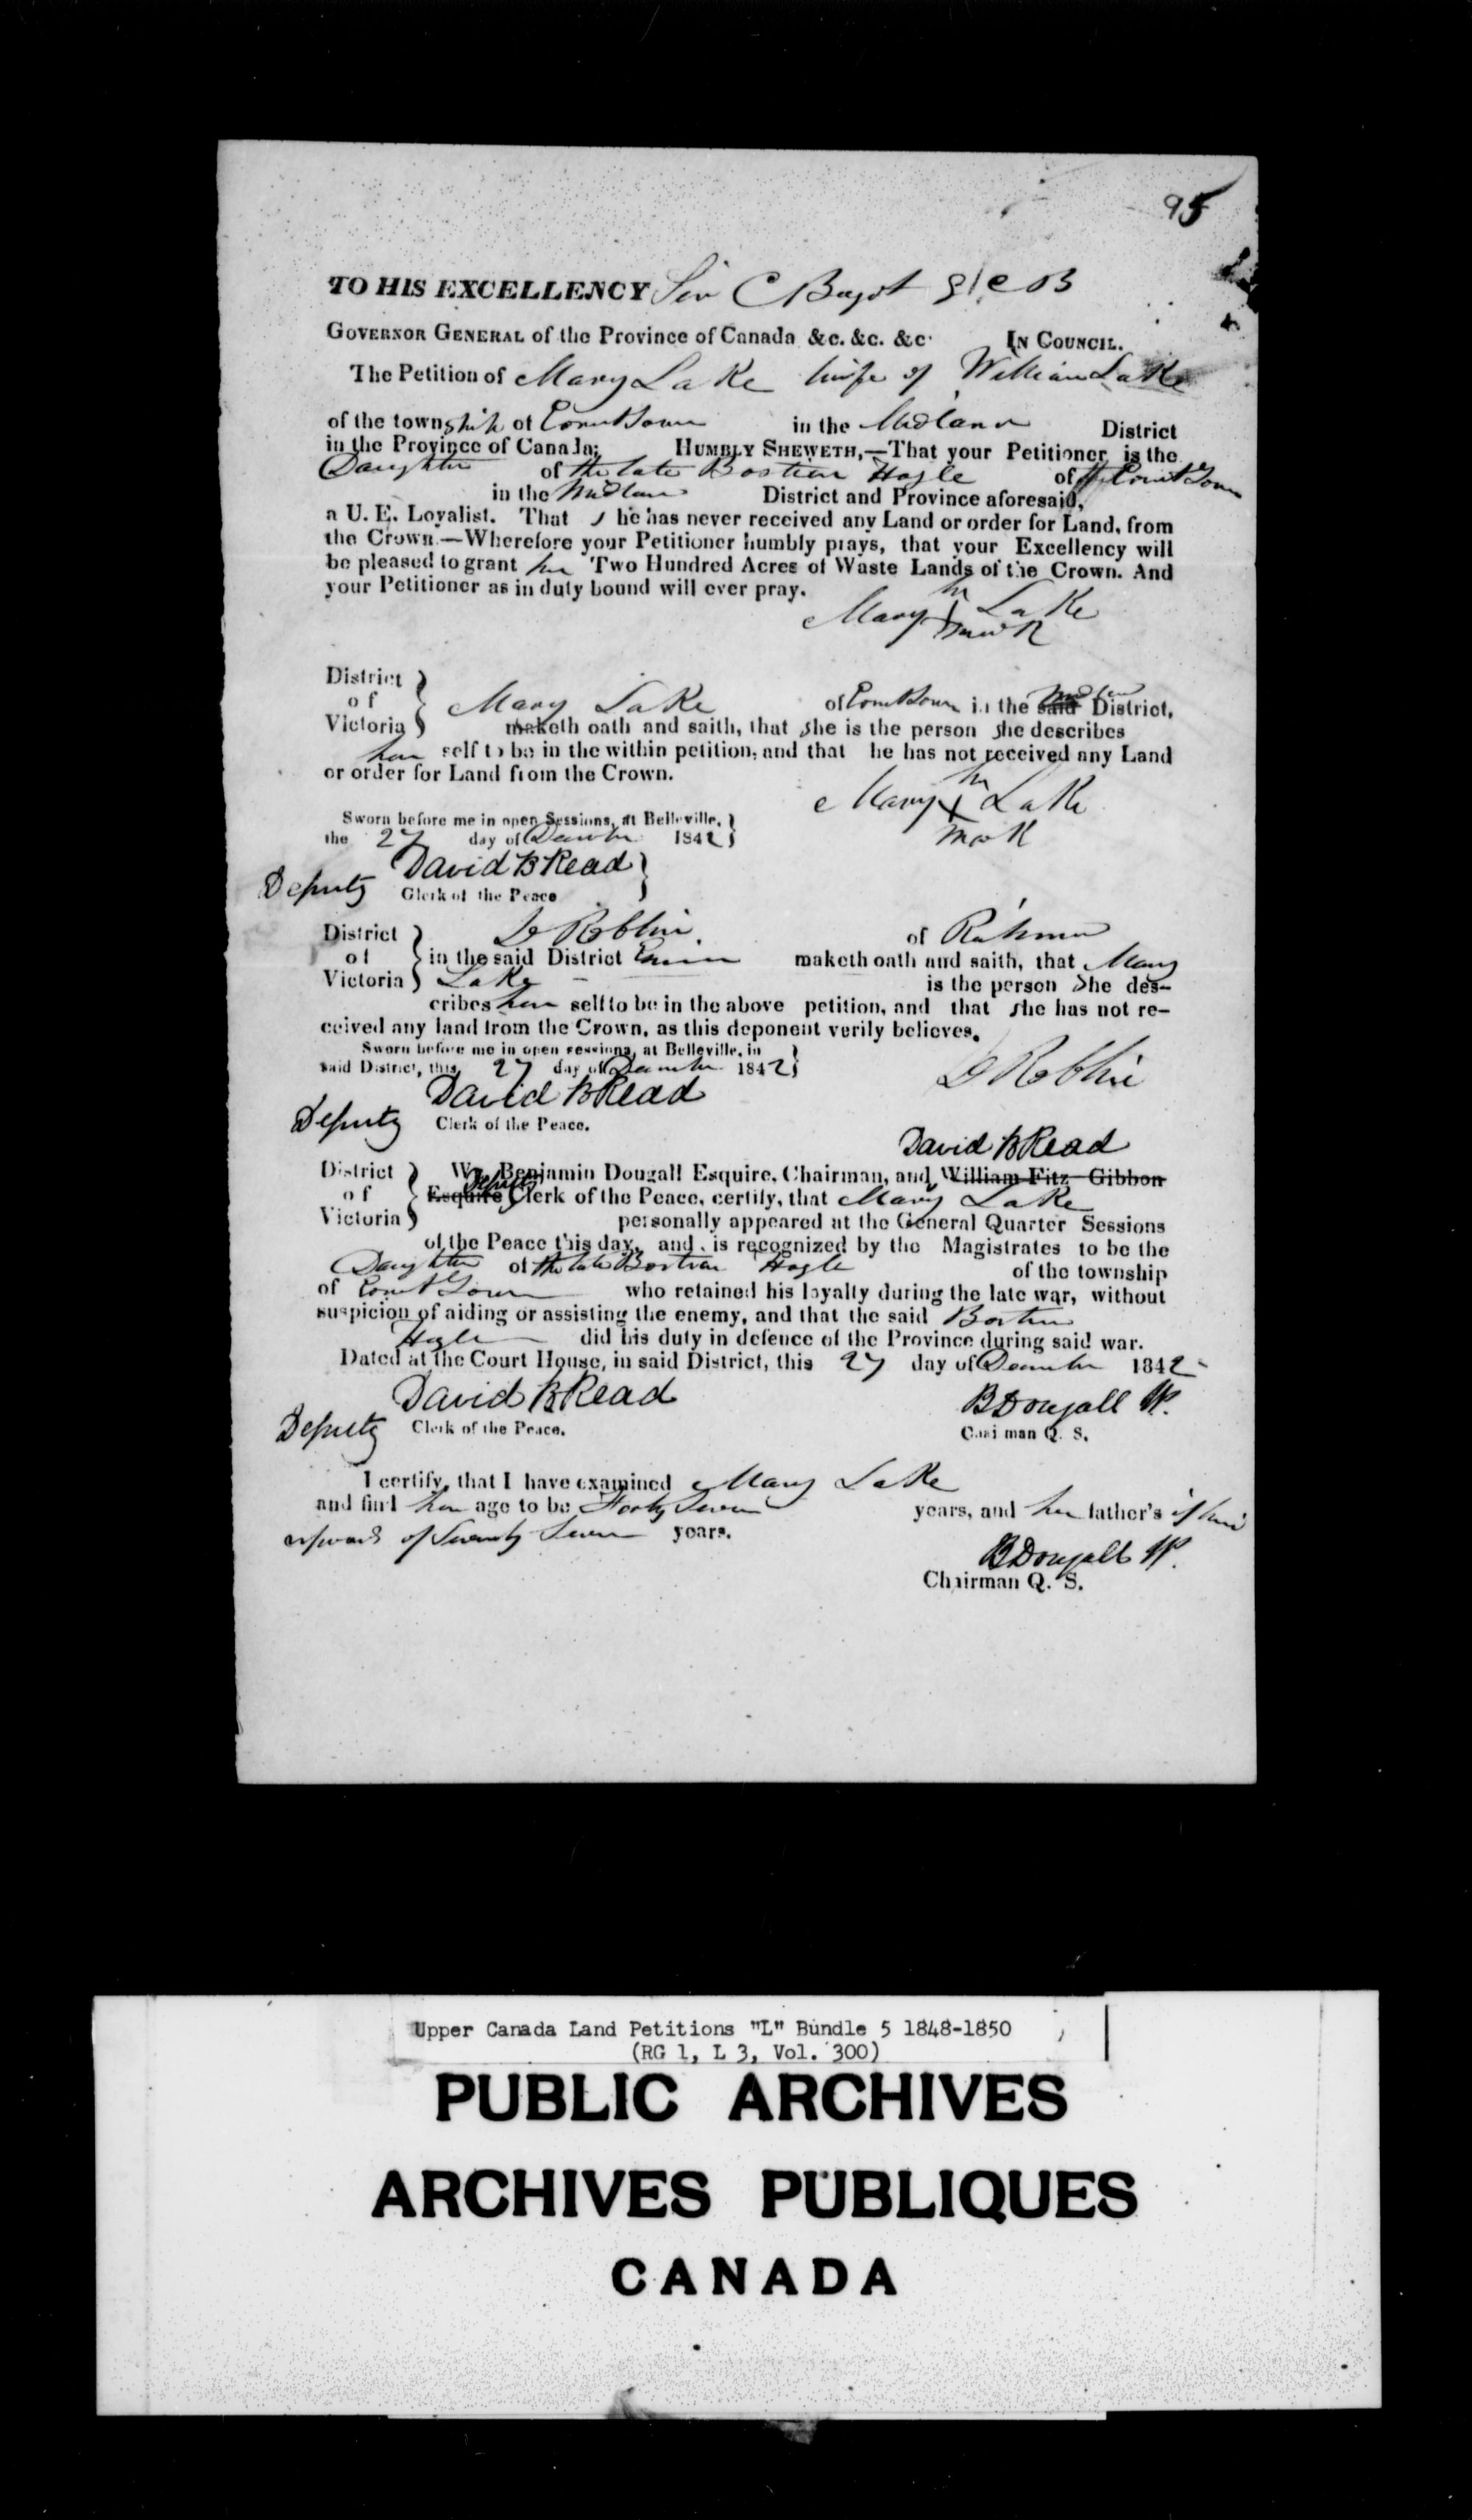 95
TO HIS EXCELLENCY Sir C Bagot G C B
GOVERNOR GENERAL of the Province of Canada &c. &c. &c. IN COUNCIL.
The Petition of Mary Lake wife of William Lake
of the township of Ernestown in the Midland District
in the Province of Canada; HUMBLY SHEWETH,—That your Petitioner is the
Daughter of the late Bostian Hogle of Ernest Town
in the Midland District and Province aforesaid,
a U. E. Loyalist. That s he has never received any Land or order for Land, from
the Crown.—Wherefore your Petitioner humbly prays, that your Excellency will
be pleased to grant her Two Hundred Acres of Waste Lands of the Crown. And
your Petitioner as in duty bound will ever pray.
her
Mary X Lake
mark
District
of
Victoria
Mary Lake of Ernestown in the said Midland District,
maketh oath and saith, that she is the person she describes
her self to be in the within petition, and that he has not received any Land
or order for Land from the Crown.
her
Mary X Lake
mark
Sworn before me in open Sessions, at Belleville,
the 27 day of December 1842
David B Read
Deputy Clerk of the Peace
District
of
Victoria
D Roblin of Richmond
in the said District maketh oath and saith, that Mary
Lake is the person She des-
cribes her self to be in the above petition, and that she has not re-
ceived any land from the Crown, as this deponent verily believes.
Sworn before me in open sessions, at Belleville, in
said District, this 27 day of December 1842
D Roblin
David B Read
Deputy Clerk of the Peace.
David B Read
District
of
Victoria
We, Benjamin Dougall Esquire, Chairman, and William Fitz Gibbon
Esquire Deputy Clerk of the Peace, certify, that Mary Lake
personally appeared at the General Quarter Sessions
of the Peace this day, and is recognized by the Magistrates to be the
Daughter of the late Bostian Hogle of the township
of Ernest Town who retained his loyalty during the late war, without
suspicion of aiding or assisting the enemy, and that the said Bostian
Hogle did his duty in defence of the Province during said war.
Dated at the Court House, in said District, this 27 day of December 1842
David B Read
Deputy Clerk of the Peace.
B Dougall JP.
Chairman Q. S.
I certify, that I have examined Mary Lake
and find her age to be Forty Seven years, and her father's if living
upwards of Seventy Seven years.
B Dougall JP.
Chairman Q. S.
Upper Canada Land Petitions "L" Bundle 5 1848-1850
(RG 1, L 3, Vol. 300)
PUBLIC ARCHIVES
ARCHIVES PUBLIQUES
CANADA